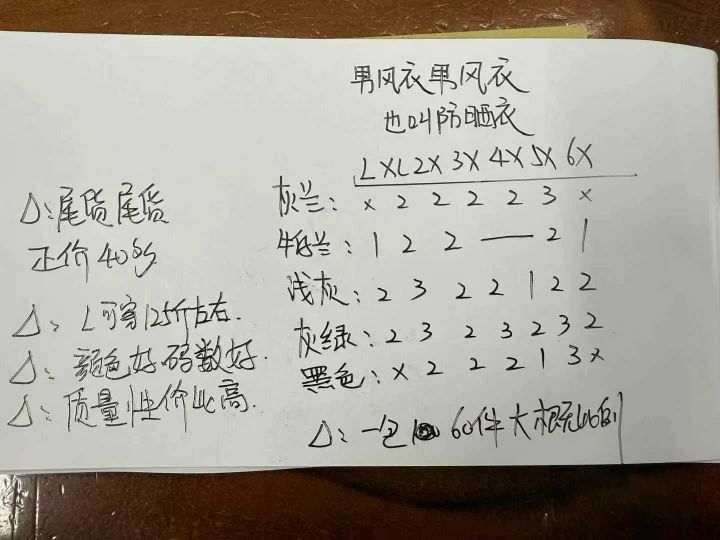 男风衣男风衣
也叫防晒衣
L XL 2X 3X 4X 5X 6X
灰兰: x 2 2 2 2 3 x
牛仔兰: 1 2 2 — 2 1
浅灰: 2 3 2 2 1 2 2
灰绿: 2 3 2 3 2 3 2
黑色: x 2 2 2 1 3 x
△: 一包 60件大概比例
△: 尾货尾货
正价40多
△: L可穿125斤左右.
△: 颜色好.码数好.
△: 质量性价比高.